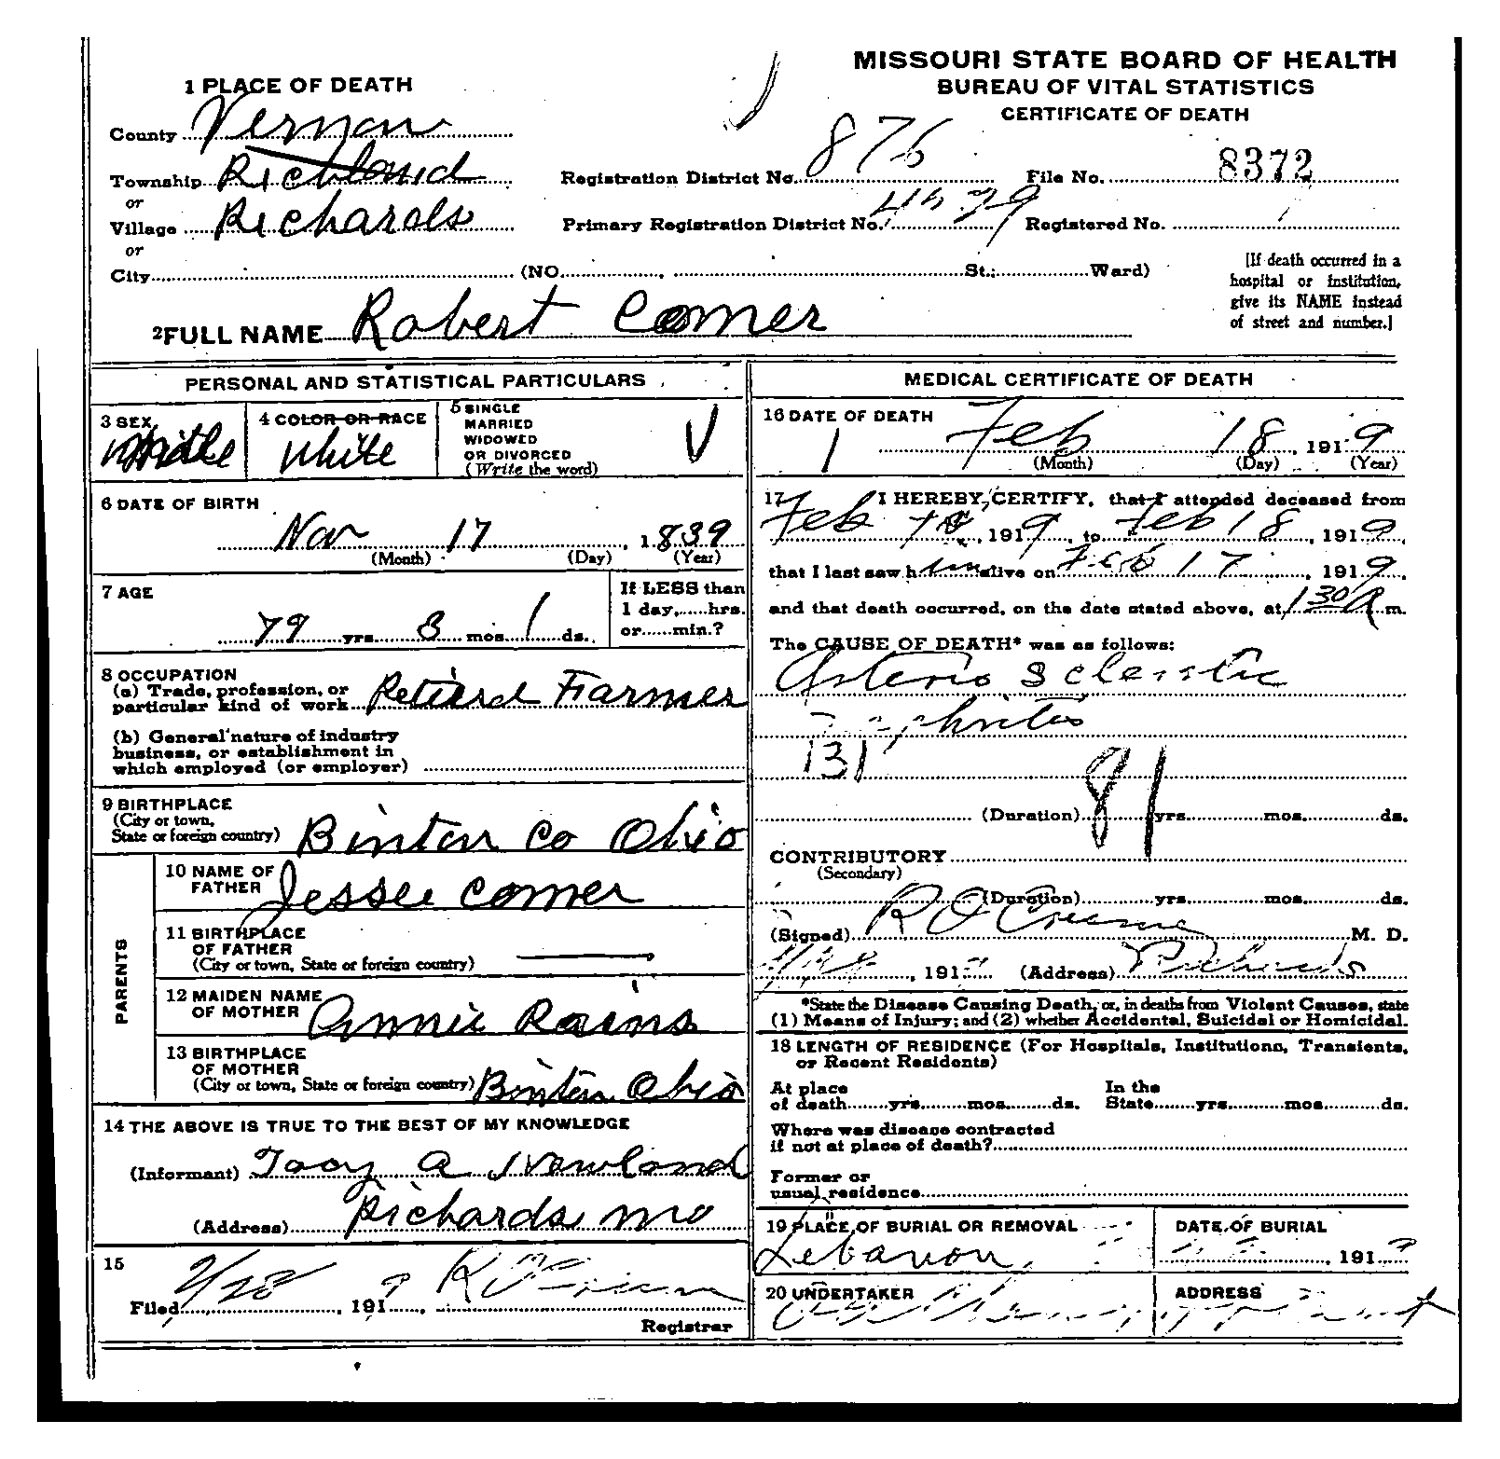 MISSOURI STATE BOARD OF HEALTH
BUREAU OF VITAL STATISTICS
CERTIFICATE OF DEATH
1 PLACE OF DEATH
County Vernon
Township Richland
or
Village Richards
or
City (NO. , St.; Ward)
Registration District No. 876
File No. 8372
Primary Registration District No.
Registered No.
[If death occurred in a
hospital or institution,
give its NAME instead
of street and number.]
2 FULL NAME Robert Comer
PERSONAL AND STATISTICAL PARTICULARS
3 SEX
4 COLOR OR RACE
White
5 SINGLE
MARRIED
WIDOWED
OR DIVORCED
(Write the word)
6 DATE OF BIRTH
Nov 17, 1839
(Month) (Day) (Year)
7 AGE
79 yrs. 3 mos. 1 ds.
If LESS than
1 day,......hrs.
or......min.?
8 OCCUPATION
(a) Trade, profession, or
particular kind of work Retierd Farmer
(b) General nature of industry
business, or establishment in
which employed (or employer)
9 BIRTHPLACE
(City or town,
State or foreign country) Binton Co Ohio
PARENTS
10 NAME OF
FATHER Jessee Comer
11 BIRTHPLACE
OF FATHER
(City or town, State or foreign country) —
12 MAIDEN NAME
OF MOTHER Annie Rains
13 BIRTHPLACE
OF MOTHER
(City or town, State or foreign country) Binton Ohio
14 THE ABOVE IS TRUE TO THE BEST OF MY KNOWLEDGE
(Informant) A Newland
(Address) Richards Mo
15
Filed 2/28, 1919,
Registrar
MEDICAL CERTIFICATE OF DEATH
16 DATE OF DEATH
1 Feb 18, 1919
(Month) (Day) (Year)
17 I HEREBY CERTIFY, that I attended deceased from
Feb , 1919, to Feb 18, 1919,
that I last saw him alive on Feb 17, 1919,
and that death occurred, on the date stated above, at 1 30 A m.
The CAUSE OF DEATH* was as follows:
Arterio Sclerotic
nephritis
131
81
(Duration) yrs. mos. ds.
CONTRIBUTORY
(Secondary)
(Duration) yrs. mos. ds.
(Signed) M. D.
, 191 (Address) Richards
*State the Disease Causing Death, or, in deaths from Violent Causes, state
(1) Means of Injury; and (2) whether Accidental, Suicidal or Homicidal.
18 LENGTH OF RESIDENCE (For Hospitals, Institutions, Transients,
or Recent Residents)
At place
of death yrs. mos. ds.
In the
State yrs. mos. ds.
Where was disease contracted
if not at place of death?
Former or
usual residence
19 PLACE OF BURIAL OR REMOVAL
Lebanon
DATE OF BURIAL
, 1919
20 UNDERTAKER
ADDRESS